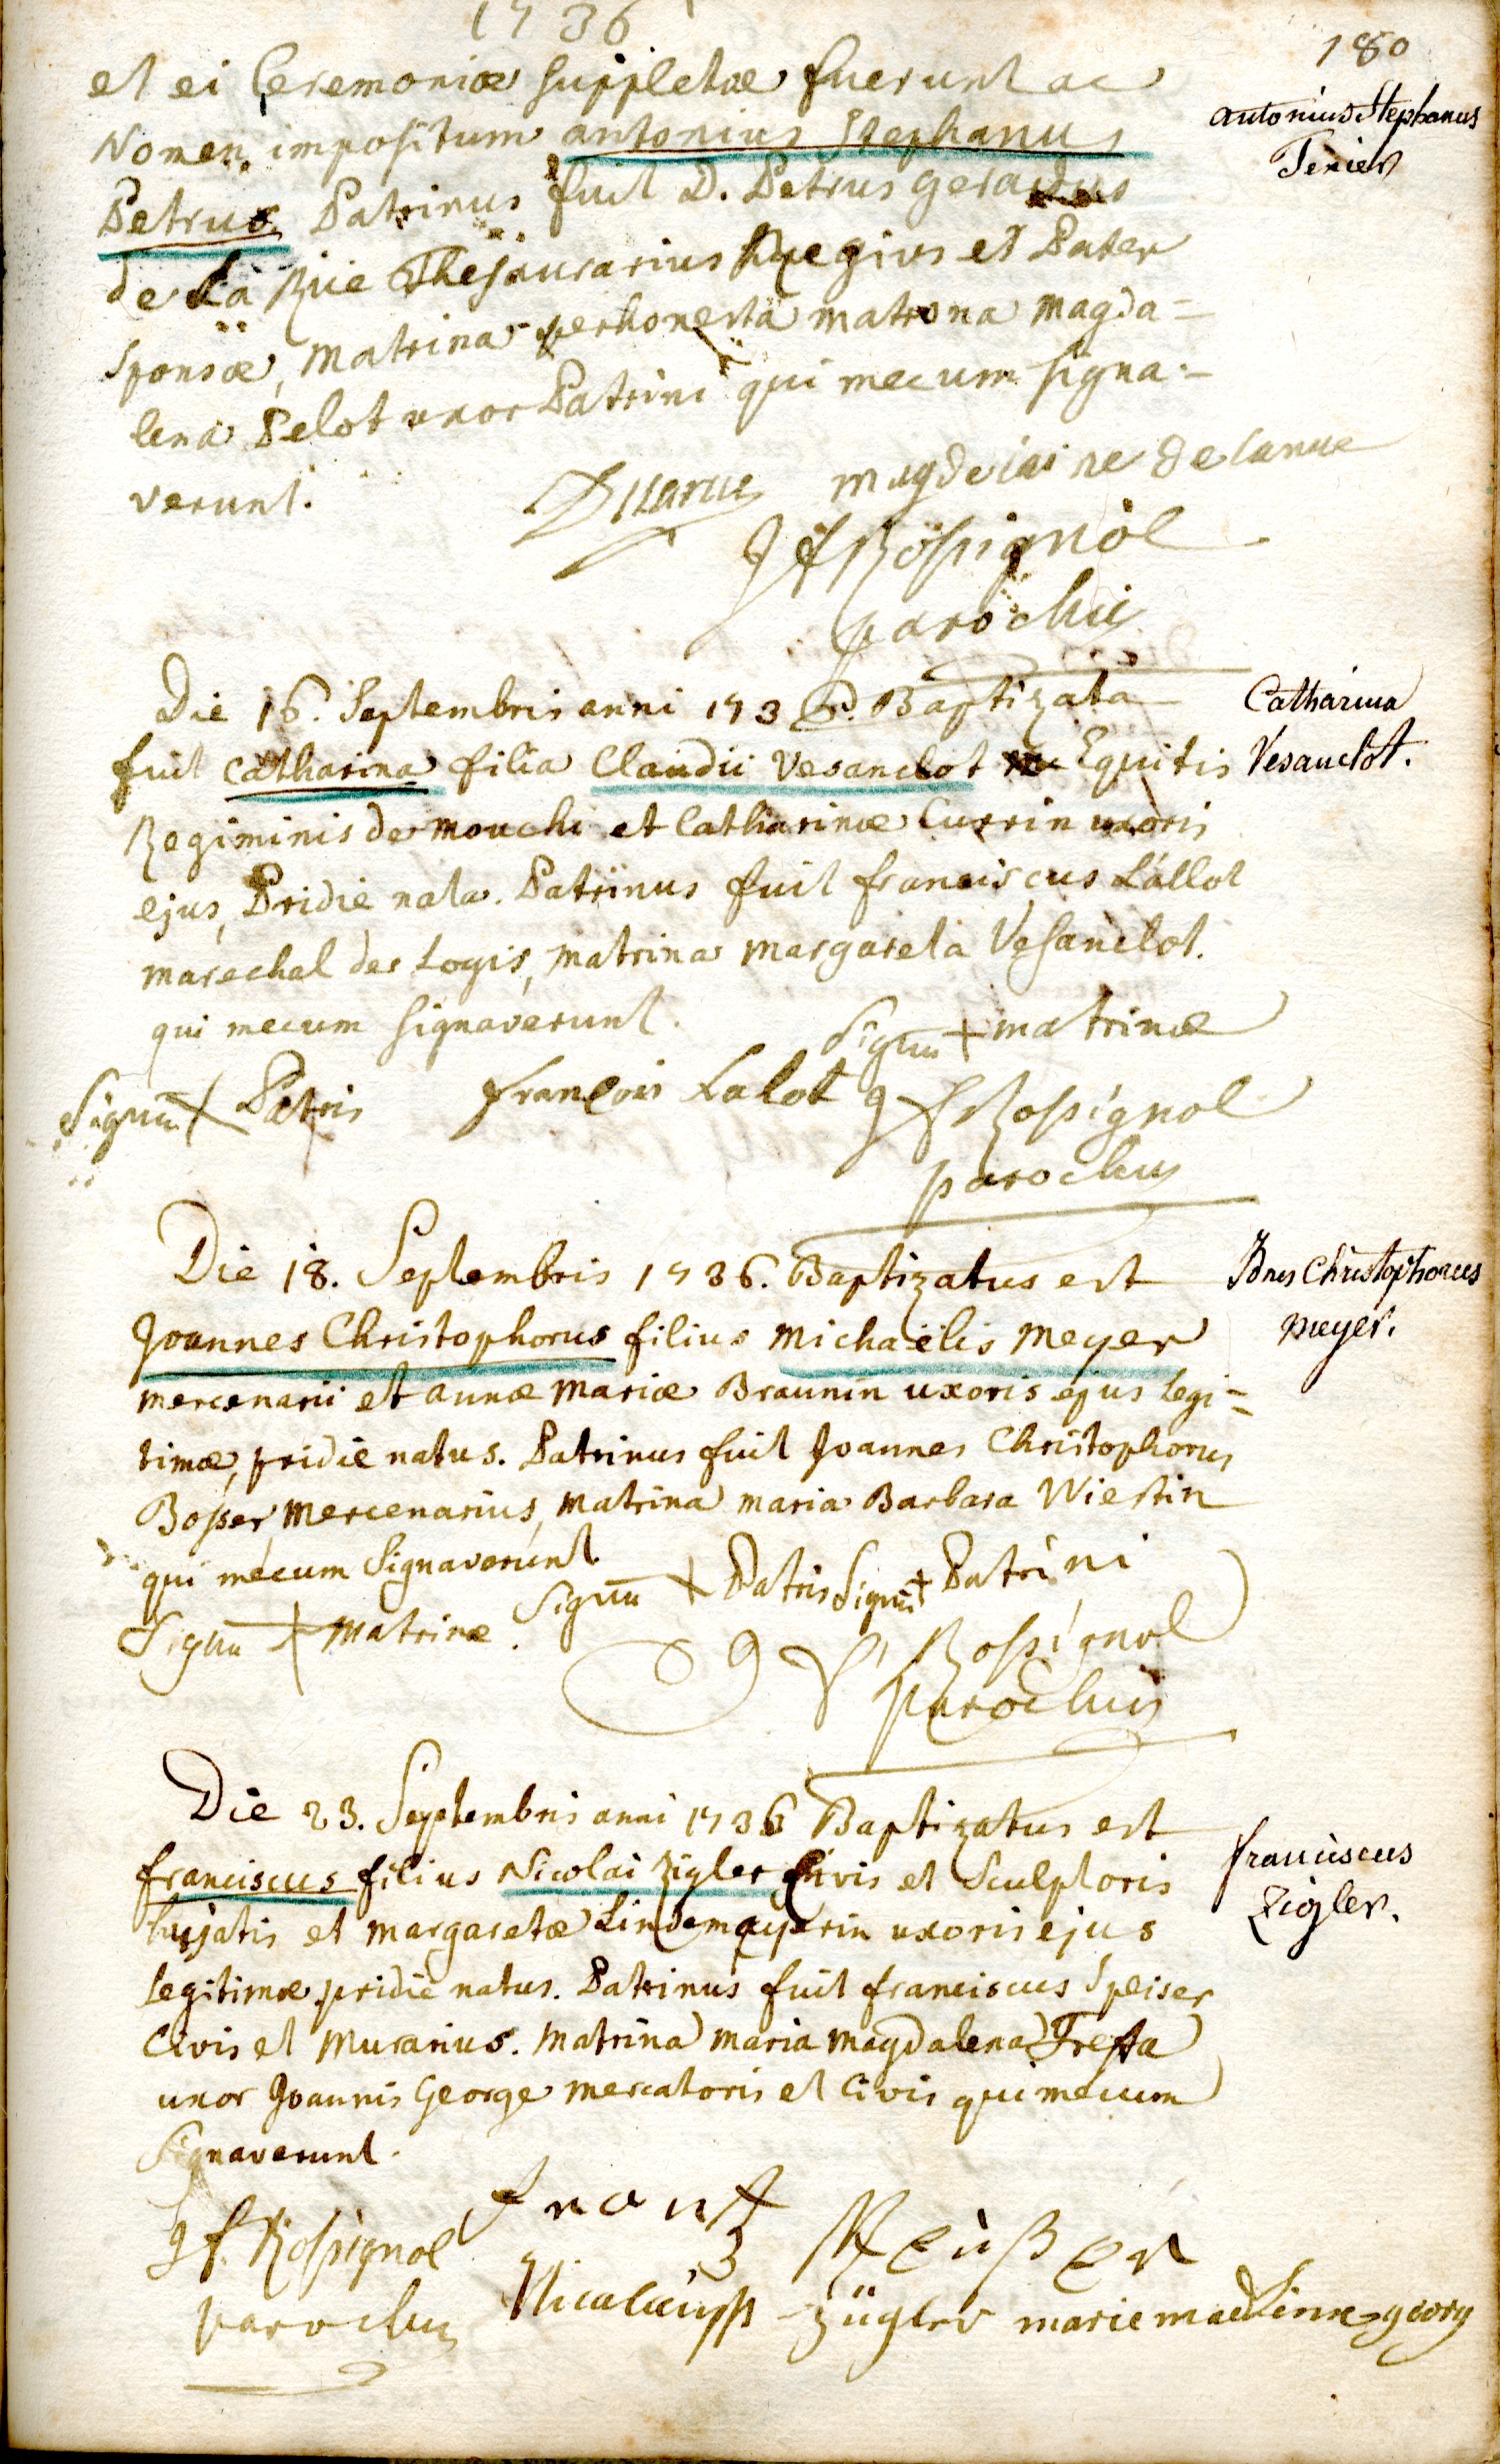 1736
180
et ei Ceremoniæ suppletæ fuerunt ac
Nomen impositum antonius Stephanus
antonius Stephanus
Petrus Patrinus fuit D. Petrus gerardus
de La Rüe Thesaurarius Regius et Pater
Sponsæ, Matrina perhonesta matrona magda=
lena Pelot uxor Patrini qui mecum signa=
verunt.
Delarue magdelaine de larue
J f Rossignol
parochus
Die 16. Septembris anni 1736. Baptizata
fuit Catharina filia Claudii Vesanclot Equitis
Catharina
Vesanclot.
Regiminis de mouchi et Catharinæ Currin uxoris
ejus, Pridie nata. Patrinus fuit franciscus Lallot
marechal des Logis, matrina margareta Vesanclot.
qui mecum signaverunt.
Signu + matrinæ
Signu + Patris françois Lalot J f Rossignol
parochus
Die 18. Septembris 1736. Baptizatus est
Joannes Christophorus filius Michaëlis Meyer
Jõnes Christophorus
meyer.
mercenarii et annæ Mariæ Braunin uxoris ejus legi=
timæ, pridie natus. Patrinus fuit Joannes Christophorus
Bosser Mercenarius, Matrina maria Barbara Wiestin
qui mecum signaverunt.
Signu + Patris Signu + Patrini
Signu + Matrinæ.
J f Rossignol
parochus
Die 23. Septembris anni 1736 Baptizatus est
franciscus filius Nicolai Zigler Civis et Sculptoris
franciscus
Zigler.
hujatis et margaretæ Lindemayerin uxoris ejus
legitimæ pridie natus. Patrinus fuit franciscus Speiser
Civis et Murarius. Matrina maria magdalena
uxor Joannis George mercatoris et Civis qui mecum
signaverunt.
J f. Rossignol frantz
parochus
Zügler marie madlenne georg